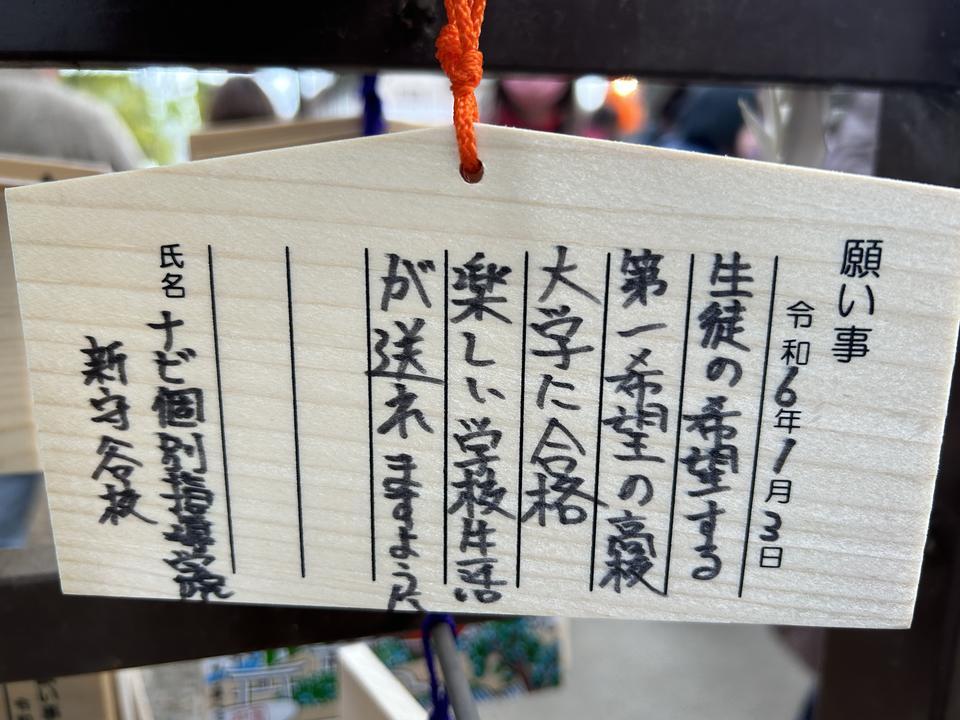 願い事
令和6年1月3日
生徒の希望する
第一希望の高校
大学に合格
楽しい学校生活
が送れますように
氏名 ナビ個別指導学院
新守谷校